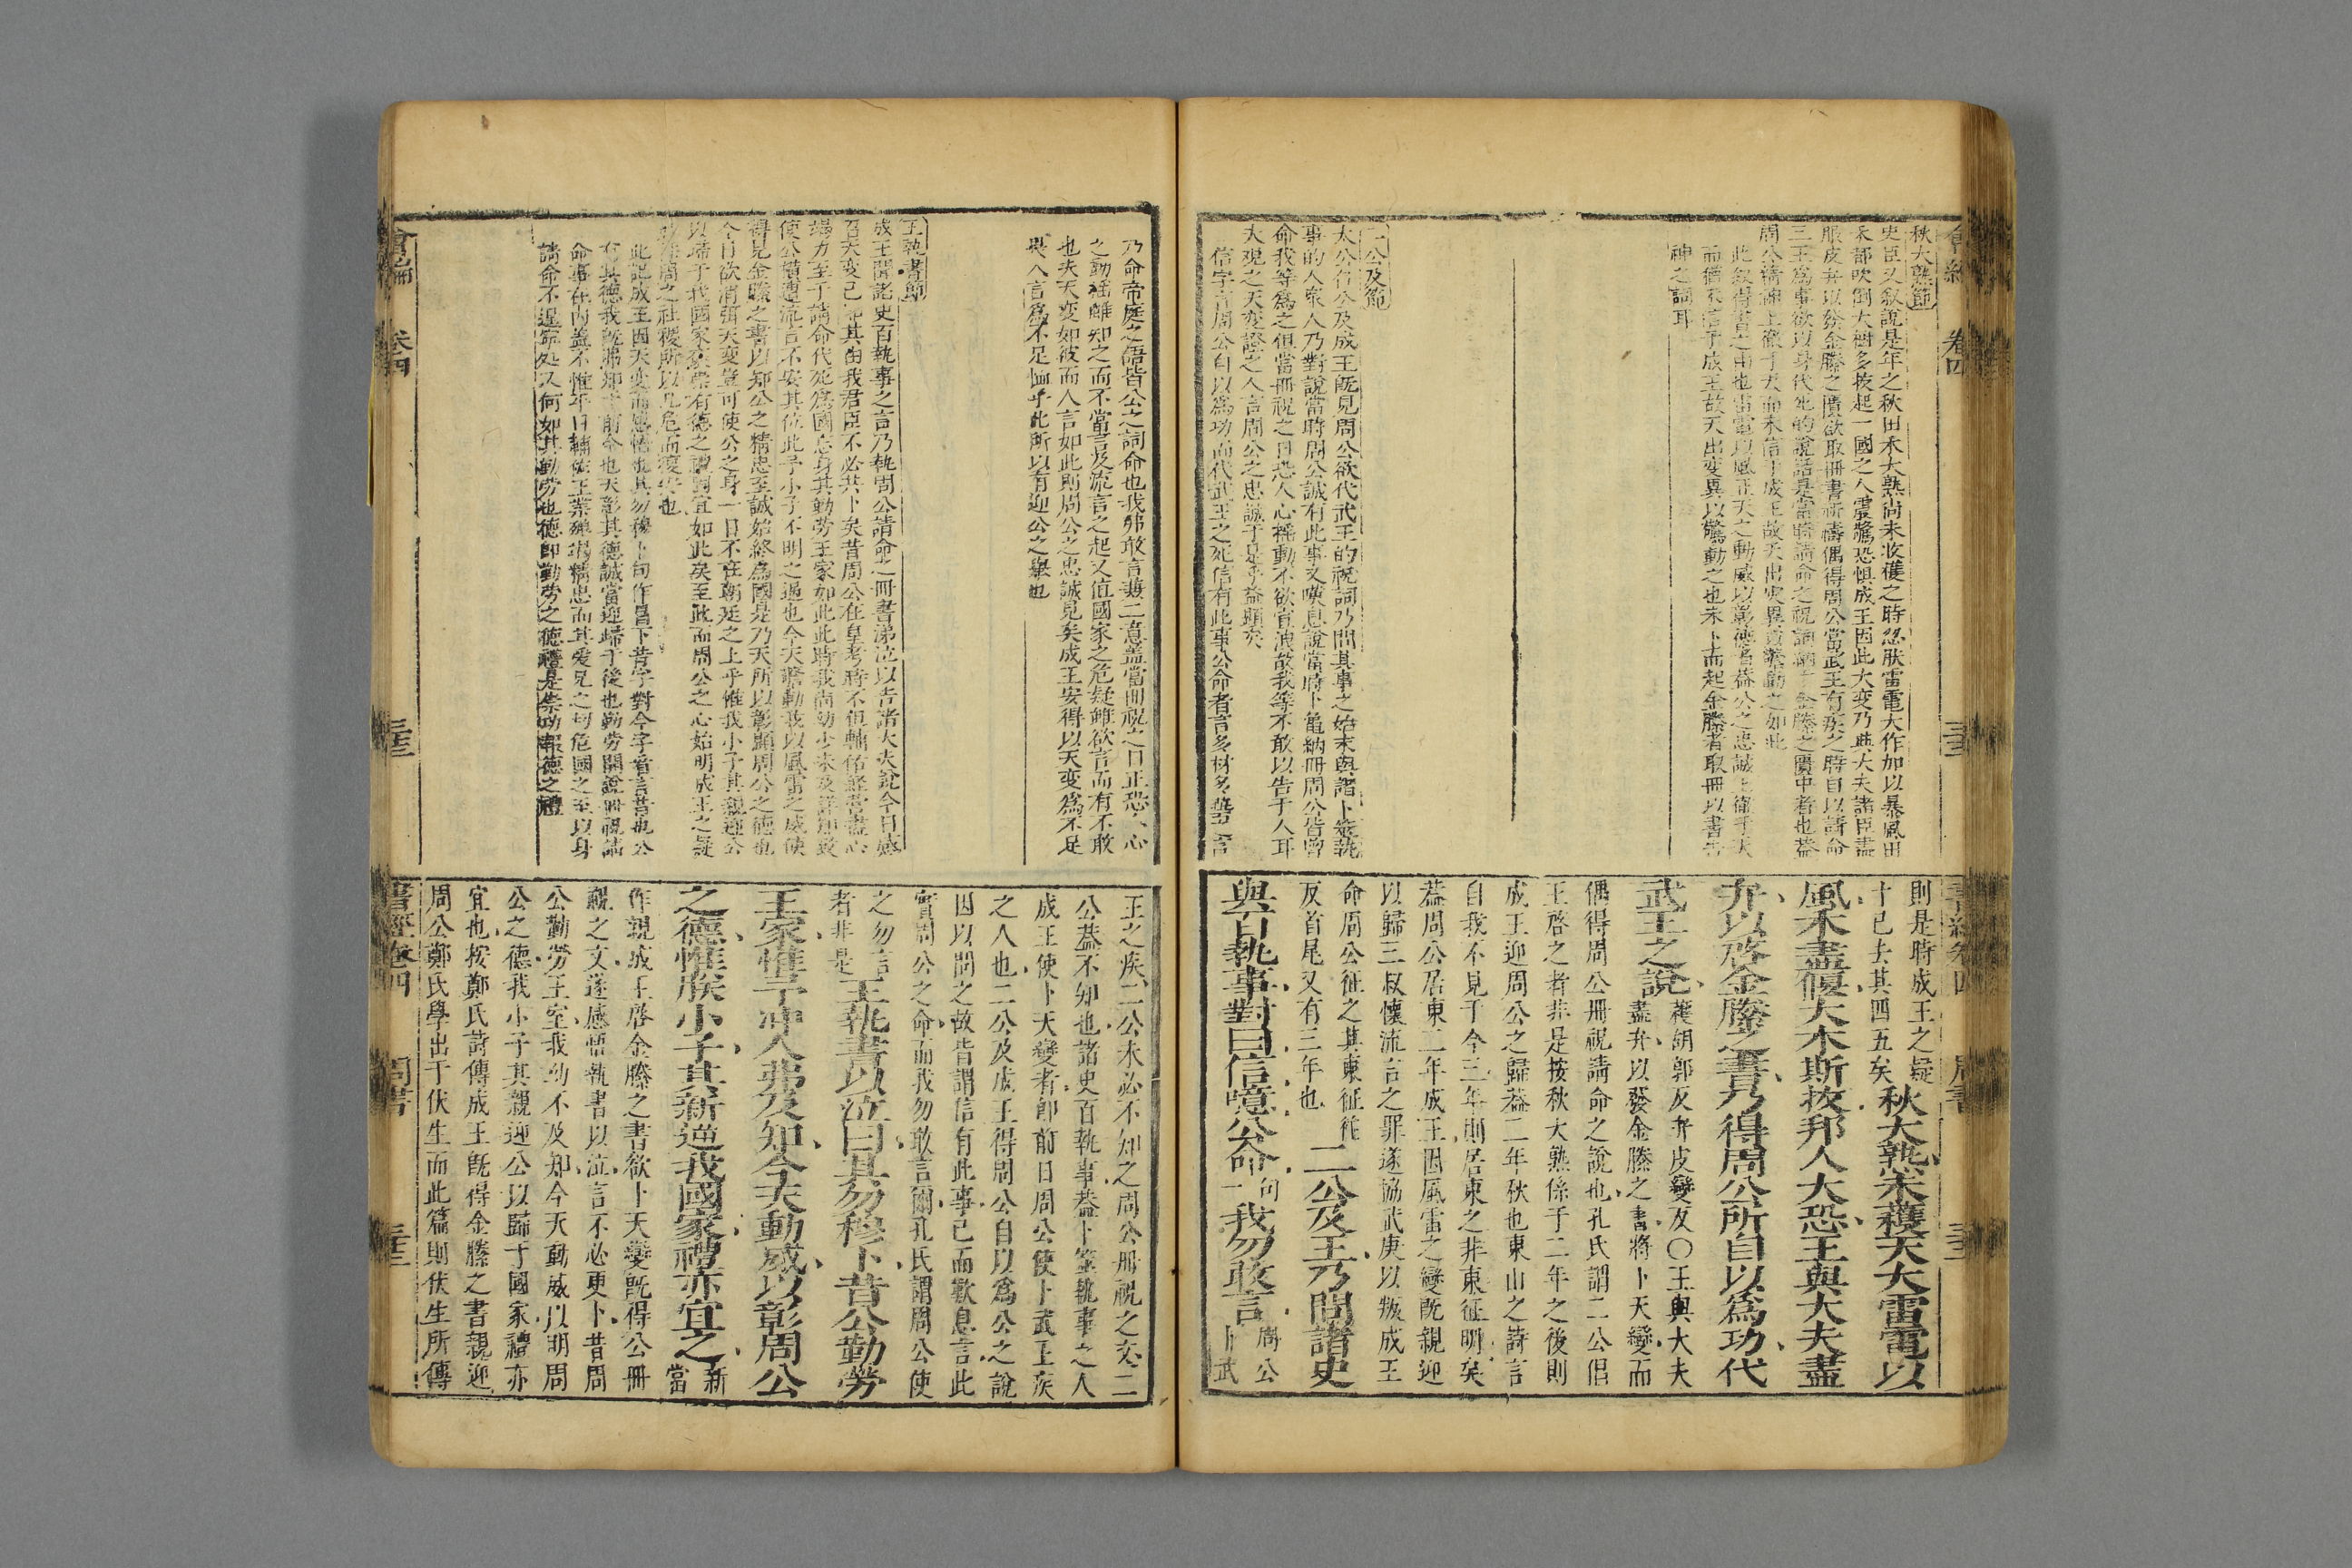 秋大熟節
史臣又敘說是年之秋田禾大熟尚未收穫之時忽肰雷電大作加以暴風田
禾都吹倒大樹多拔起一國之人震驚恐惧成王因此大变乃與大夫諸臣盡
服皮弁以啓金縢之匱欲取冊書祈禱偶得周公當武王有疾之時自以請命
三王爲事欲以身代死的說話是當時請命之祝詞納于金縢之匱中者也葢
周公請禱上徹于天而未信于成王故天出灾異
此叙得書之由也雷電以風正天之動威以彰德
而猶不信于成王故天出变異以驚動之也未卜而起金縢者取冊以書告
神之詞耳
二公及節
太公召公及成王既見周公欲代武王的祝詞乃問其事之始末與諸卜筮執
事的人衆人乃對說當時周公誠有此事又嘆息說當時卜亀納冊周公皆曾
命我等爲之但當冊祝之日恐人心揺動不欲宣洩故我等不敢以告于人耳
夫观之天变證之人言周公之忠誠于是乎益顯矣
信字言周公自以爲功而代武王之死信有此事公命者言多材多藝
則是時成王之疑
十已去其四五矣 秋大熟未穫天大雷電以
風禾盡偃大木斯拔邦人大恐王與大夫盡
弁以啓金縢之書乃得周公所自以爲功代
武王之說 穫胡郭反弁皮變反○王與大夫
盡弁以發金縢之書將卜天變而
偶得周公冊祝請命之說也孔氏謂二公倡
王啓之者非是按秋大熟係于二年之後則
成王迎周公之歸葢二年秋也東山之詩言
自我不見于今三年則居東之非東征明矣
葢周公居東二年成王因風雷之變既親迎
以歸三叔懷流言之罪遂協武庚以叛成王
命周公征之其東征徃
反首尾又有三年也 二公及王乃問諸史
與百執事對曰信噫公命 句 我勿敢言 周公
卜武
乃命帝庭之語皆公之詞命也我弗敢言無二意葢當冊祝之日正恐人心
之動揺雖知之而不當言及流言之起又値國家之危疑雖欲言而有不敢
也夫天变如彼而人言如此則周公之忠誠見矣成王安得以天变爲不足
畏人言爲不足恤乎此所以有迎公之舉也
王執書節
成王聞諸史百執事之言乃執周公請命之冊書涕泣以告諸大夫說今日感
召天变已知其由我君臣不必共卜矣昔周公在皇考時不但輔佑經营盡心
竭力至于請命代死爲國忘身其勤勞王家如此此時我尚幼少未及詳知致
使公橫遭流言不安其位此予小子不明之過也今天警動我以風雷之威使
得見金縢之書以知公之精忠至誠始終爲國是乃天所以彰顯周公之德也
今日欲消弭天变豈可使公之身一日不在朝廷之上乎惟我小子其親迎公
以歸于我國家褒崇有德之禮固宜如此矣至此而周公之心始明成王之疑
始釋周之社稷所以几危而復安也
此記成王因天变而感悟也其勿穆卜句作冒下昔字對今字看言昔也公
有其德我既弗知于前今也天彰其德誠當迎歸于後也勤勞開說冊祝請
命事在內葢不惟平日輔佐王業殫竭精忠而其愛兄之切危國之至以身
請命不遑寧处又何如其勤勞也德即勤勞之德禮是崇功報德之禮
王之疾二公未必不知之周公冊祝之文二
公葢不知也諸史百執事葢卜筮執事之人
成王使卜天變者即前日周公使卜武王疾
之人也二公及成王得周公自以爲公之說
因以問之故皆謂信有此事已而歎息言此
實周公之命而我勿敢言爾孔氏謂周公使
之勿言
者非是 王執書以泣曰其勿穆卜昔公勤勞
王家惟予冲人弗及知今天動威以彰周公
之德惟朕小子其新逆我國家禮亦宜之 新
當
作親成王啓金縢之書欲卜天變既得公冊
親之文遂感悟執書以泣言不必更卜昔周
公勤勞王室我幼不及知今天動威以明周
公之德我小子其親迎公以歸于國家禮亦
宜也按鄭氏詩傳成王既得金縢之書親迎
周公鄭氏學出于伏生而此篇則伏生所傳
書經卷四 周書